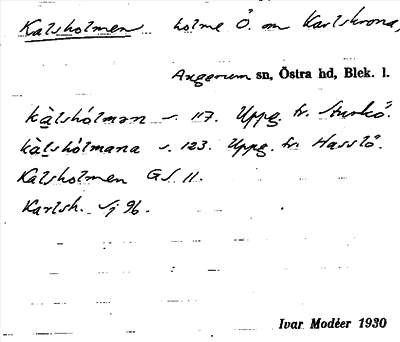 Kalsholmen holme Ö. om Karlskrona,
Augerum sn, Östra hd, Blek. l.
kàlshólmən s. 117. Uppg. fr. Sturkö.
kàlshólmana s. 123. Uppg. fr. Hasslö.
Kalsholmen GS. 11.
Karlsh. Sj 96.
Ivar Modéer 1930